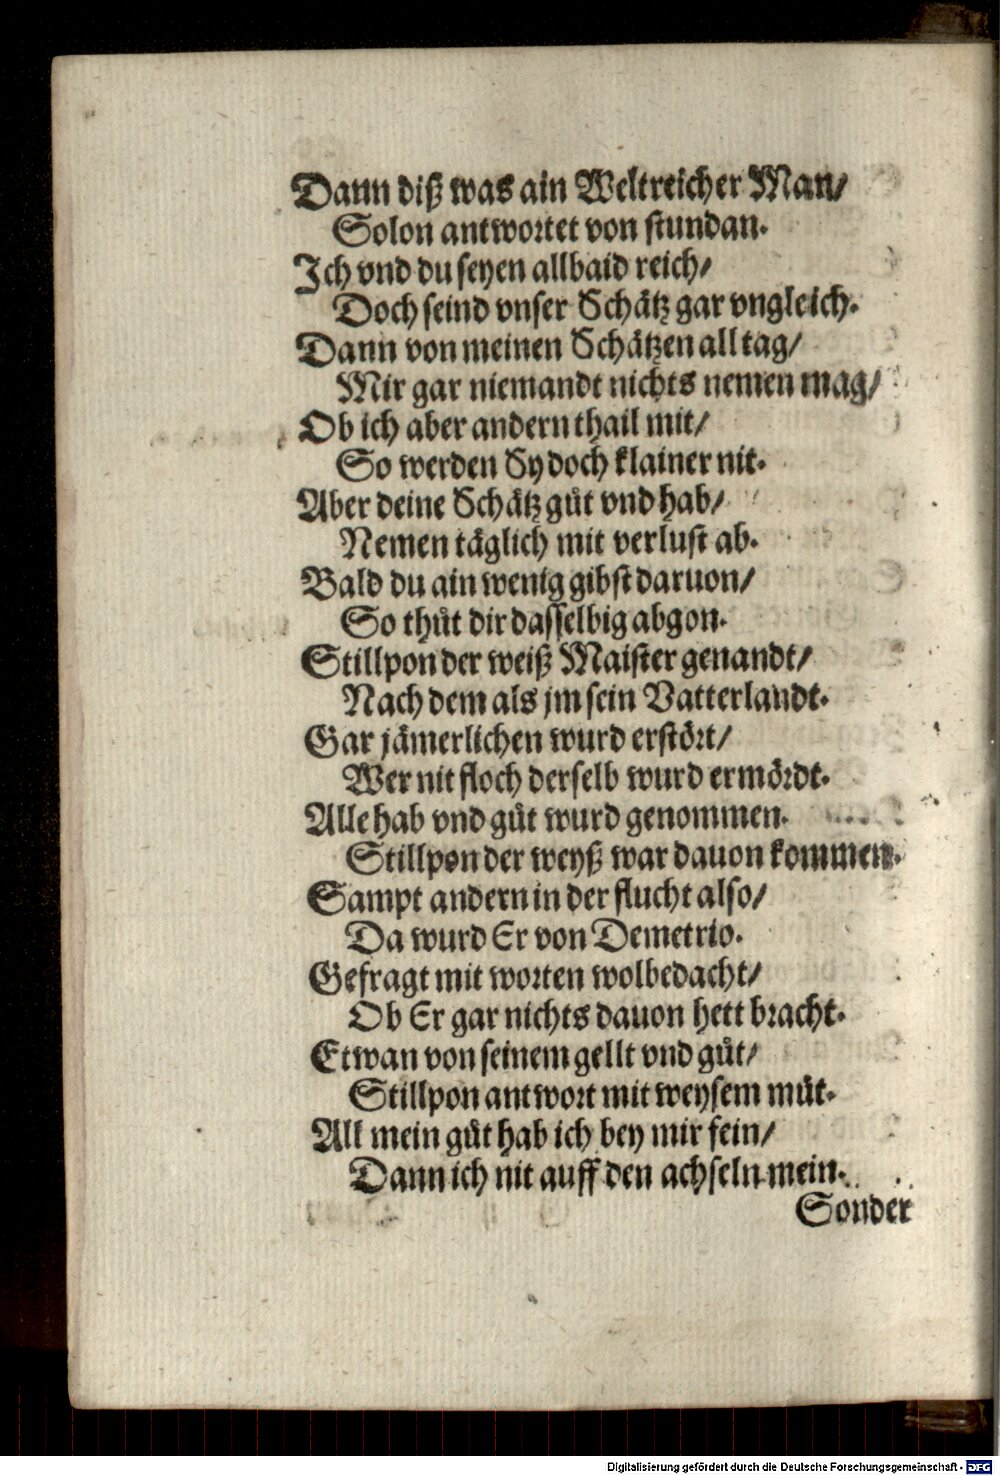 Dann diß was ain Weltreicher Man/
Solon antwortet von stundan.
Ich vnd du seyen allbaid reich/
Doch seind vnser Schätz gar vngleich.
Dann von meinen Schätzen all tag/
Mir gar niemandt nichts nemen mag/
Ob ich aber andern thail mit/
So werden Sy doch klainer nit.
Aber deine Schätz gůt vnd hab/
Nemen täglich mit verlust ab.
Bald du ain wenig gibst daruon/
So thůt dir dasselbig abgon.
Stillpon der weiß Maister genandt/
Nach dem als jm sein Vatterlandt.
Gar jämerlichen wurd erstört/
Wer nit floch derselb wurd ermördt.
Alle hab vnd gůt wurd genommen.
Stillpon der weyß war dauon kommen.
Sampt andern in der flucht also/
Da wurd Er von Demetrio.
Gefragt mit worten wolbedacht/
Ob Er gar nichts dauon hett bracht.
Etwan von seinem gellt vnd gůt/
Stillpon antwort mit weysem můt.
All mein gůt hab ich bey mir fein/
Dann ich nit auff den achseln mein.
Sonder
Digitalisierung gefördert durch die Deutsche Forschungsgemeinschaft - DFG